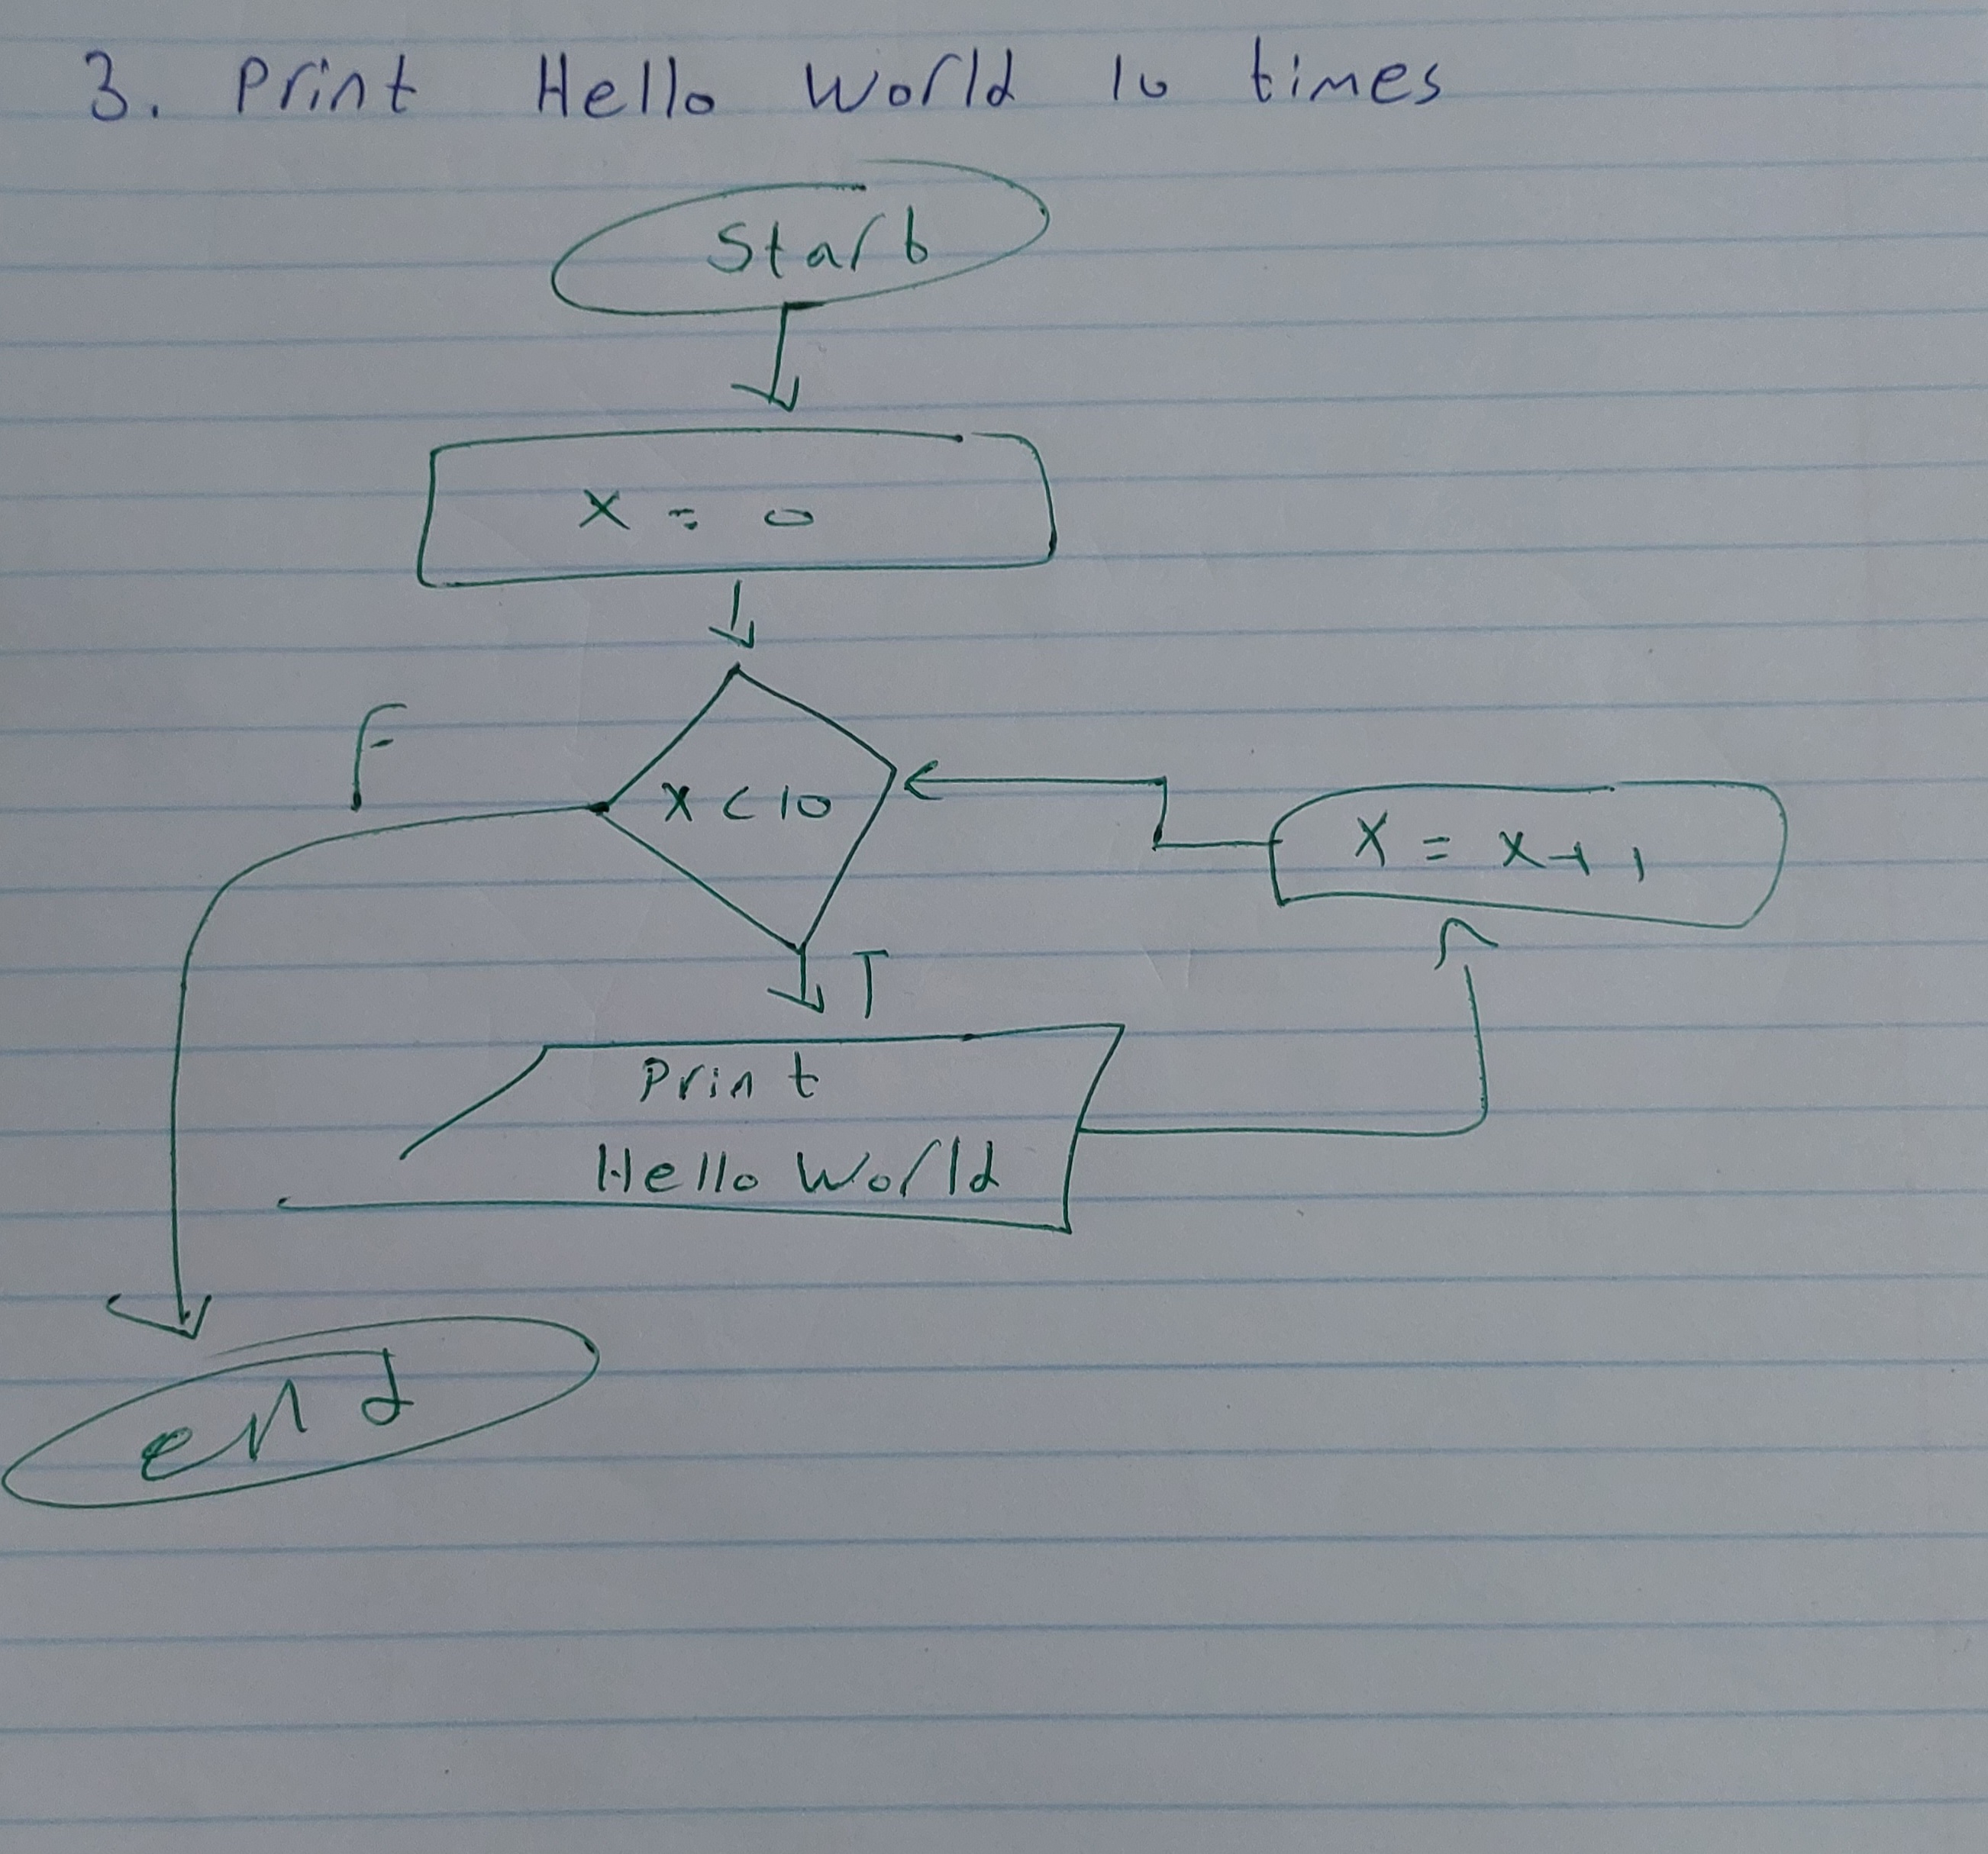 3. Print Hello World 10 times
Start
X = 0
F
X < 10
X = X + 1
T
Print
Hello World
end